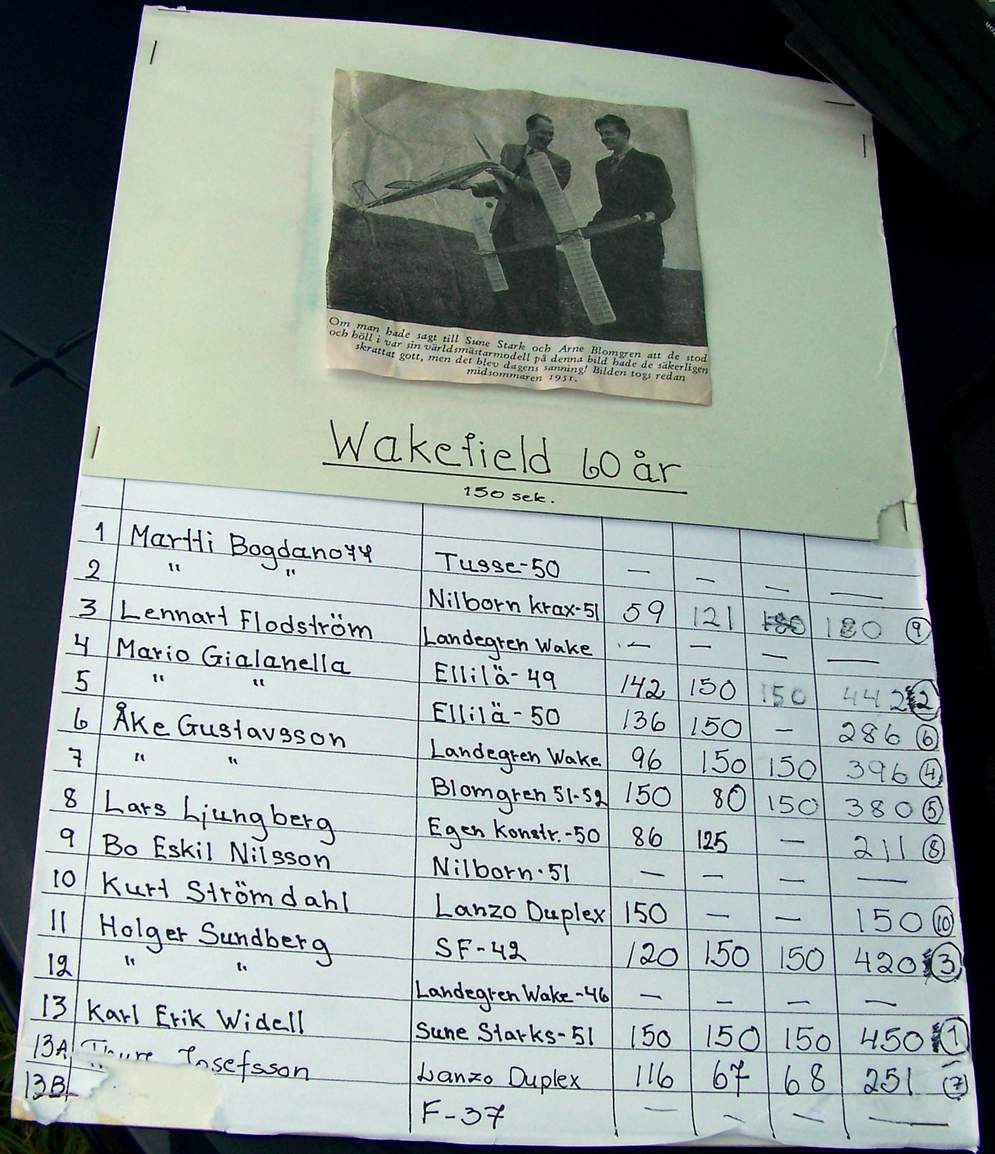 Om man hade sagt till Sune Stark och Arne Blomgren att de stod
och höll i var sin världsmästarmodell på denna bild hade de säkerligen
skrattat gott, men det blev dagens sanning! Bilden togs redan
midsommaren 1951.
Wakefield 60 år
150 sek.
1 Martti Bogdanoff Tusse-50 — — — —
2 " " Nilborn Krax-51 59 121 180 180 9
3 Lennart Flodström Landegren Wake — — — —
4 Mario Gialanella Ellilä-49 142 150 150 442 2
5 " " Ellilä-50 136 150 — 286 6
6 Åke Gustavsson Landegren Wake 96 150 150 396 4
7 " " Blomgren 51-52 150 80 150 380 5
8 Lars Ljungberg Egen Konstr.-50 86 125 — 211 8
9 Bo Eskil Nilsson Nilborn-51 — — — —
10 Kurt Strömdahl Lanzo Duplex 150 — — 150 10
11 Holger Sundberg SF-42 120 150 150 420 3
12 " " Landegren Wake-46 — — — —
13 Karl Erik Widell Sune Starks-51 150 150 150 450 1
13A Thure Josefsson Lanzo Duplex 116 67 68 251 7
13B F-37 — — — —